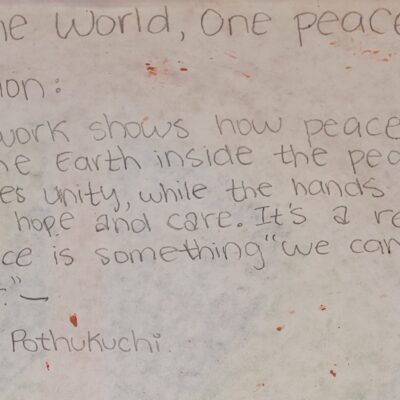 ne World, One peace
ion:
work shows how peace
he Earth inside the pea
es unity, while the hands
hope and care. It's a re
ce is something "we can
."
Pothukuchi